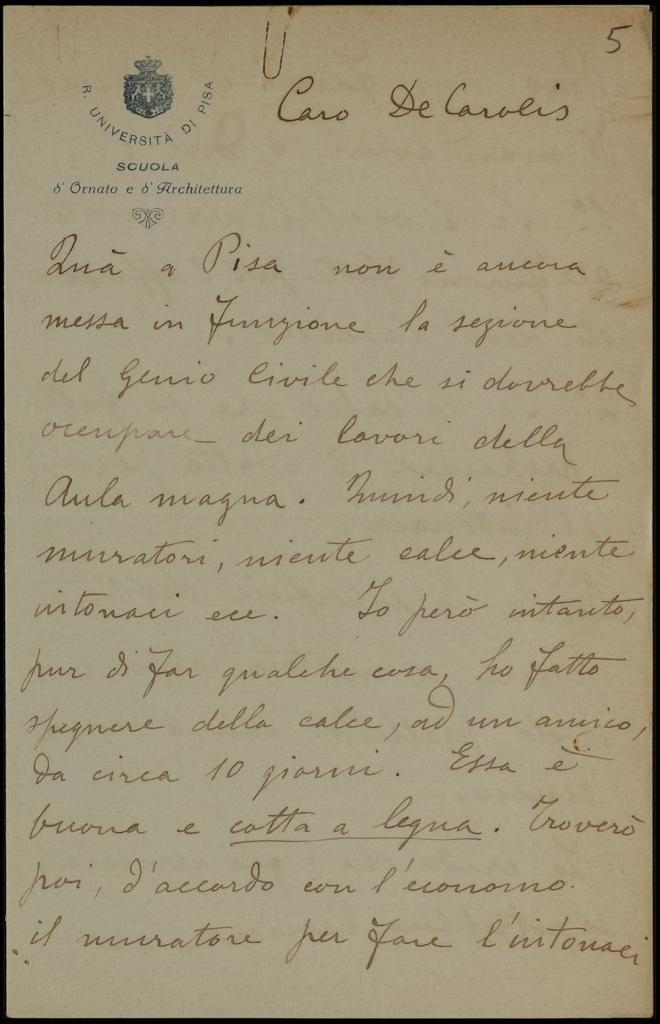 5
R. UNIVERSITÀ DI PISA
SCUOLA
d'Ornato e d'Architettura
Caro De Carolis
Quà a Pisa non è ancora
messa in funzione la sezione
del Genio Civile che si dovrebbe
occupare dei lavori della
Aula magna. Quindi, niente
muratori, niente calce, niente
intonaci ecc. Io però intanto,
pur di far qualche cosa, ho fatto
spegnere della calce, ad un amico,
da circa 10 giorni. Essa è
buona e cotta a legna. Troverò
poi, d'accordo con l'economo.
il muratore per fare l'intonaci